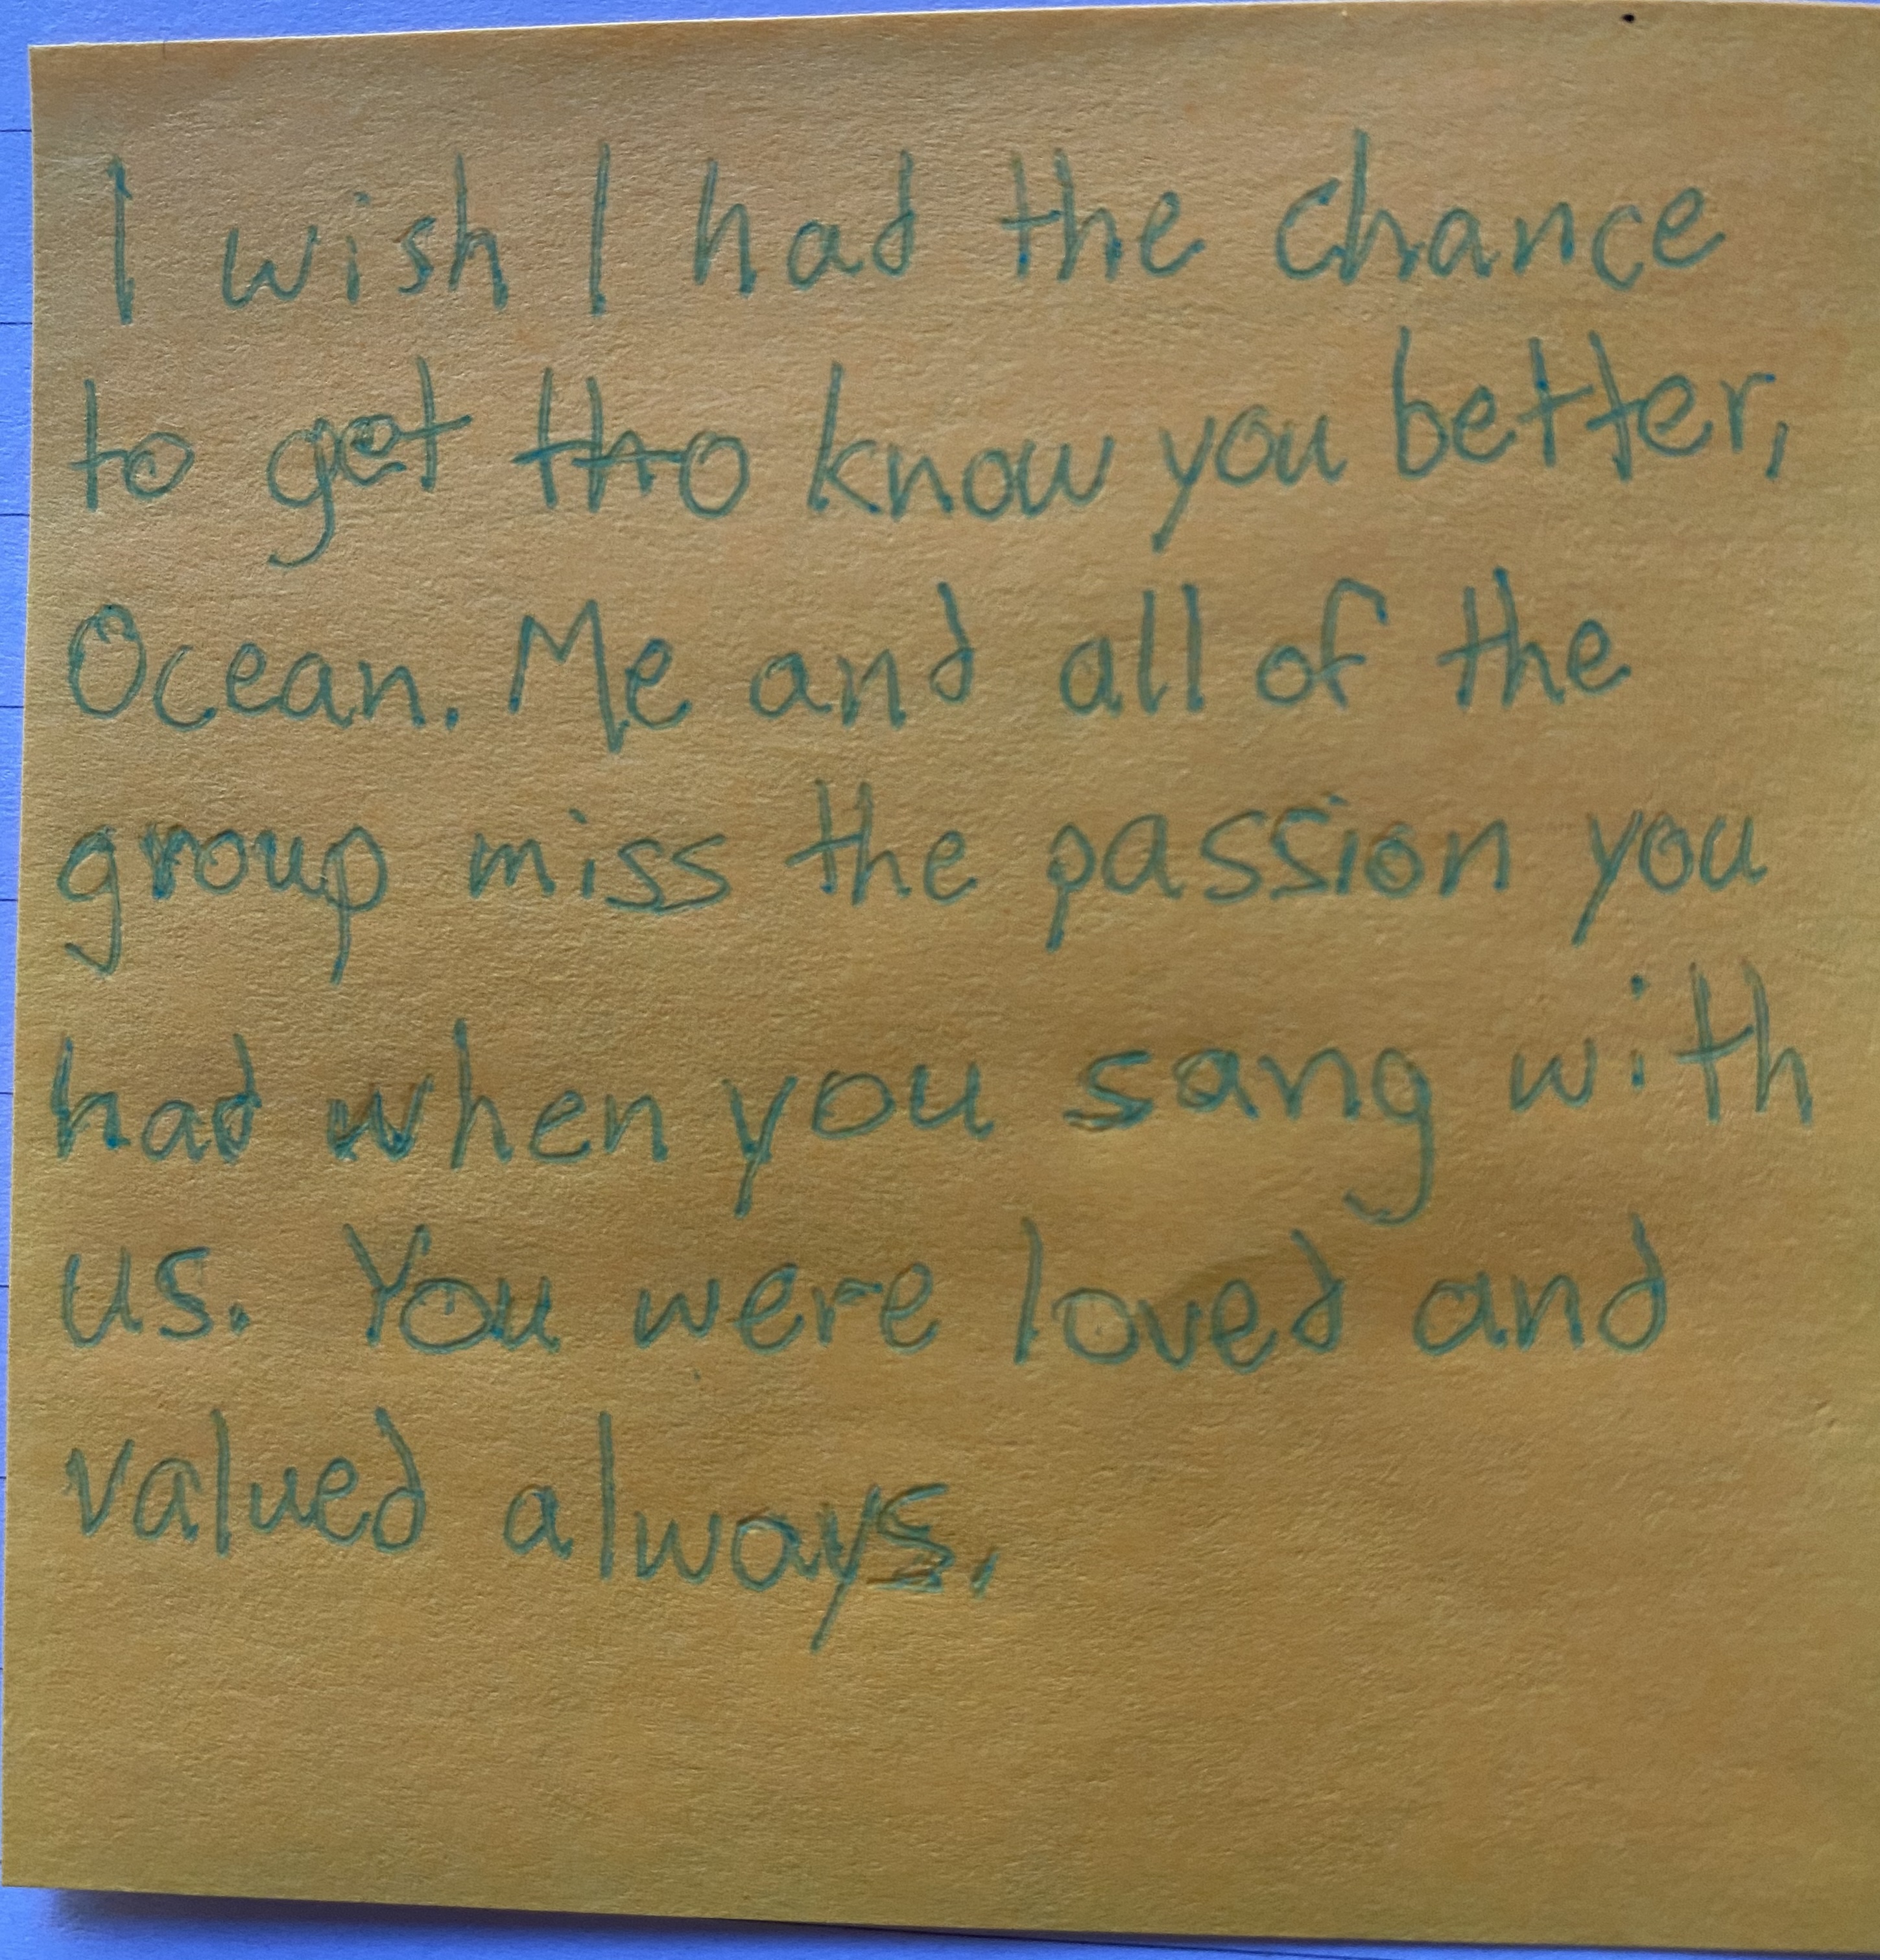 I wish I had the chance
to get tho know you better,
Ocean. Me and all of the
group miss the passion you
had when you sang with
us. You were loved and
valued always.